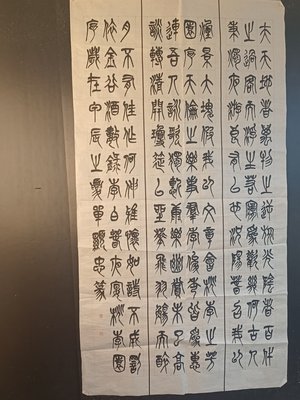 夫天地者萬物之逆旅光陰者百代
之過客而浮生若夢為歡幾何古人
秉燭夜游良有以也況陽春召我以
煙景大塊假我以文章會桃李之芳
園序天倫之樂事群季俊秀皆為惠
連吾人詠歌獨慚康樂幽賞未已高
談轉清開瓊筵以坐華飛羽觴而醉
月不有佳作何伸雅懷如詩不成罰
依金谷酒數錄李白春夜宴桃李園
序歲在甲辰之夏單顯忠篆